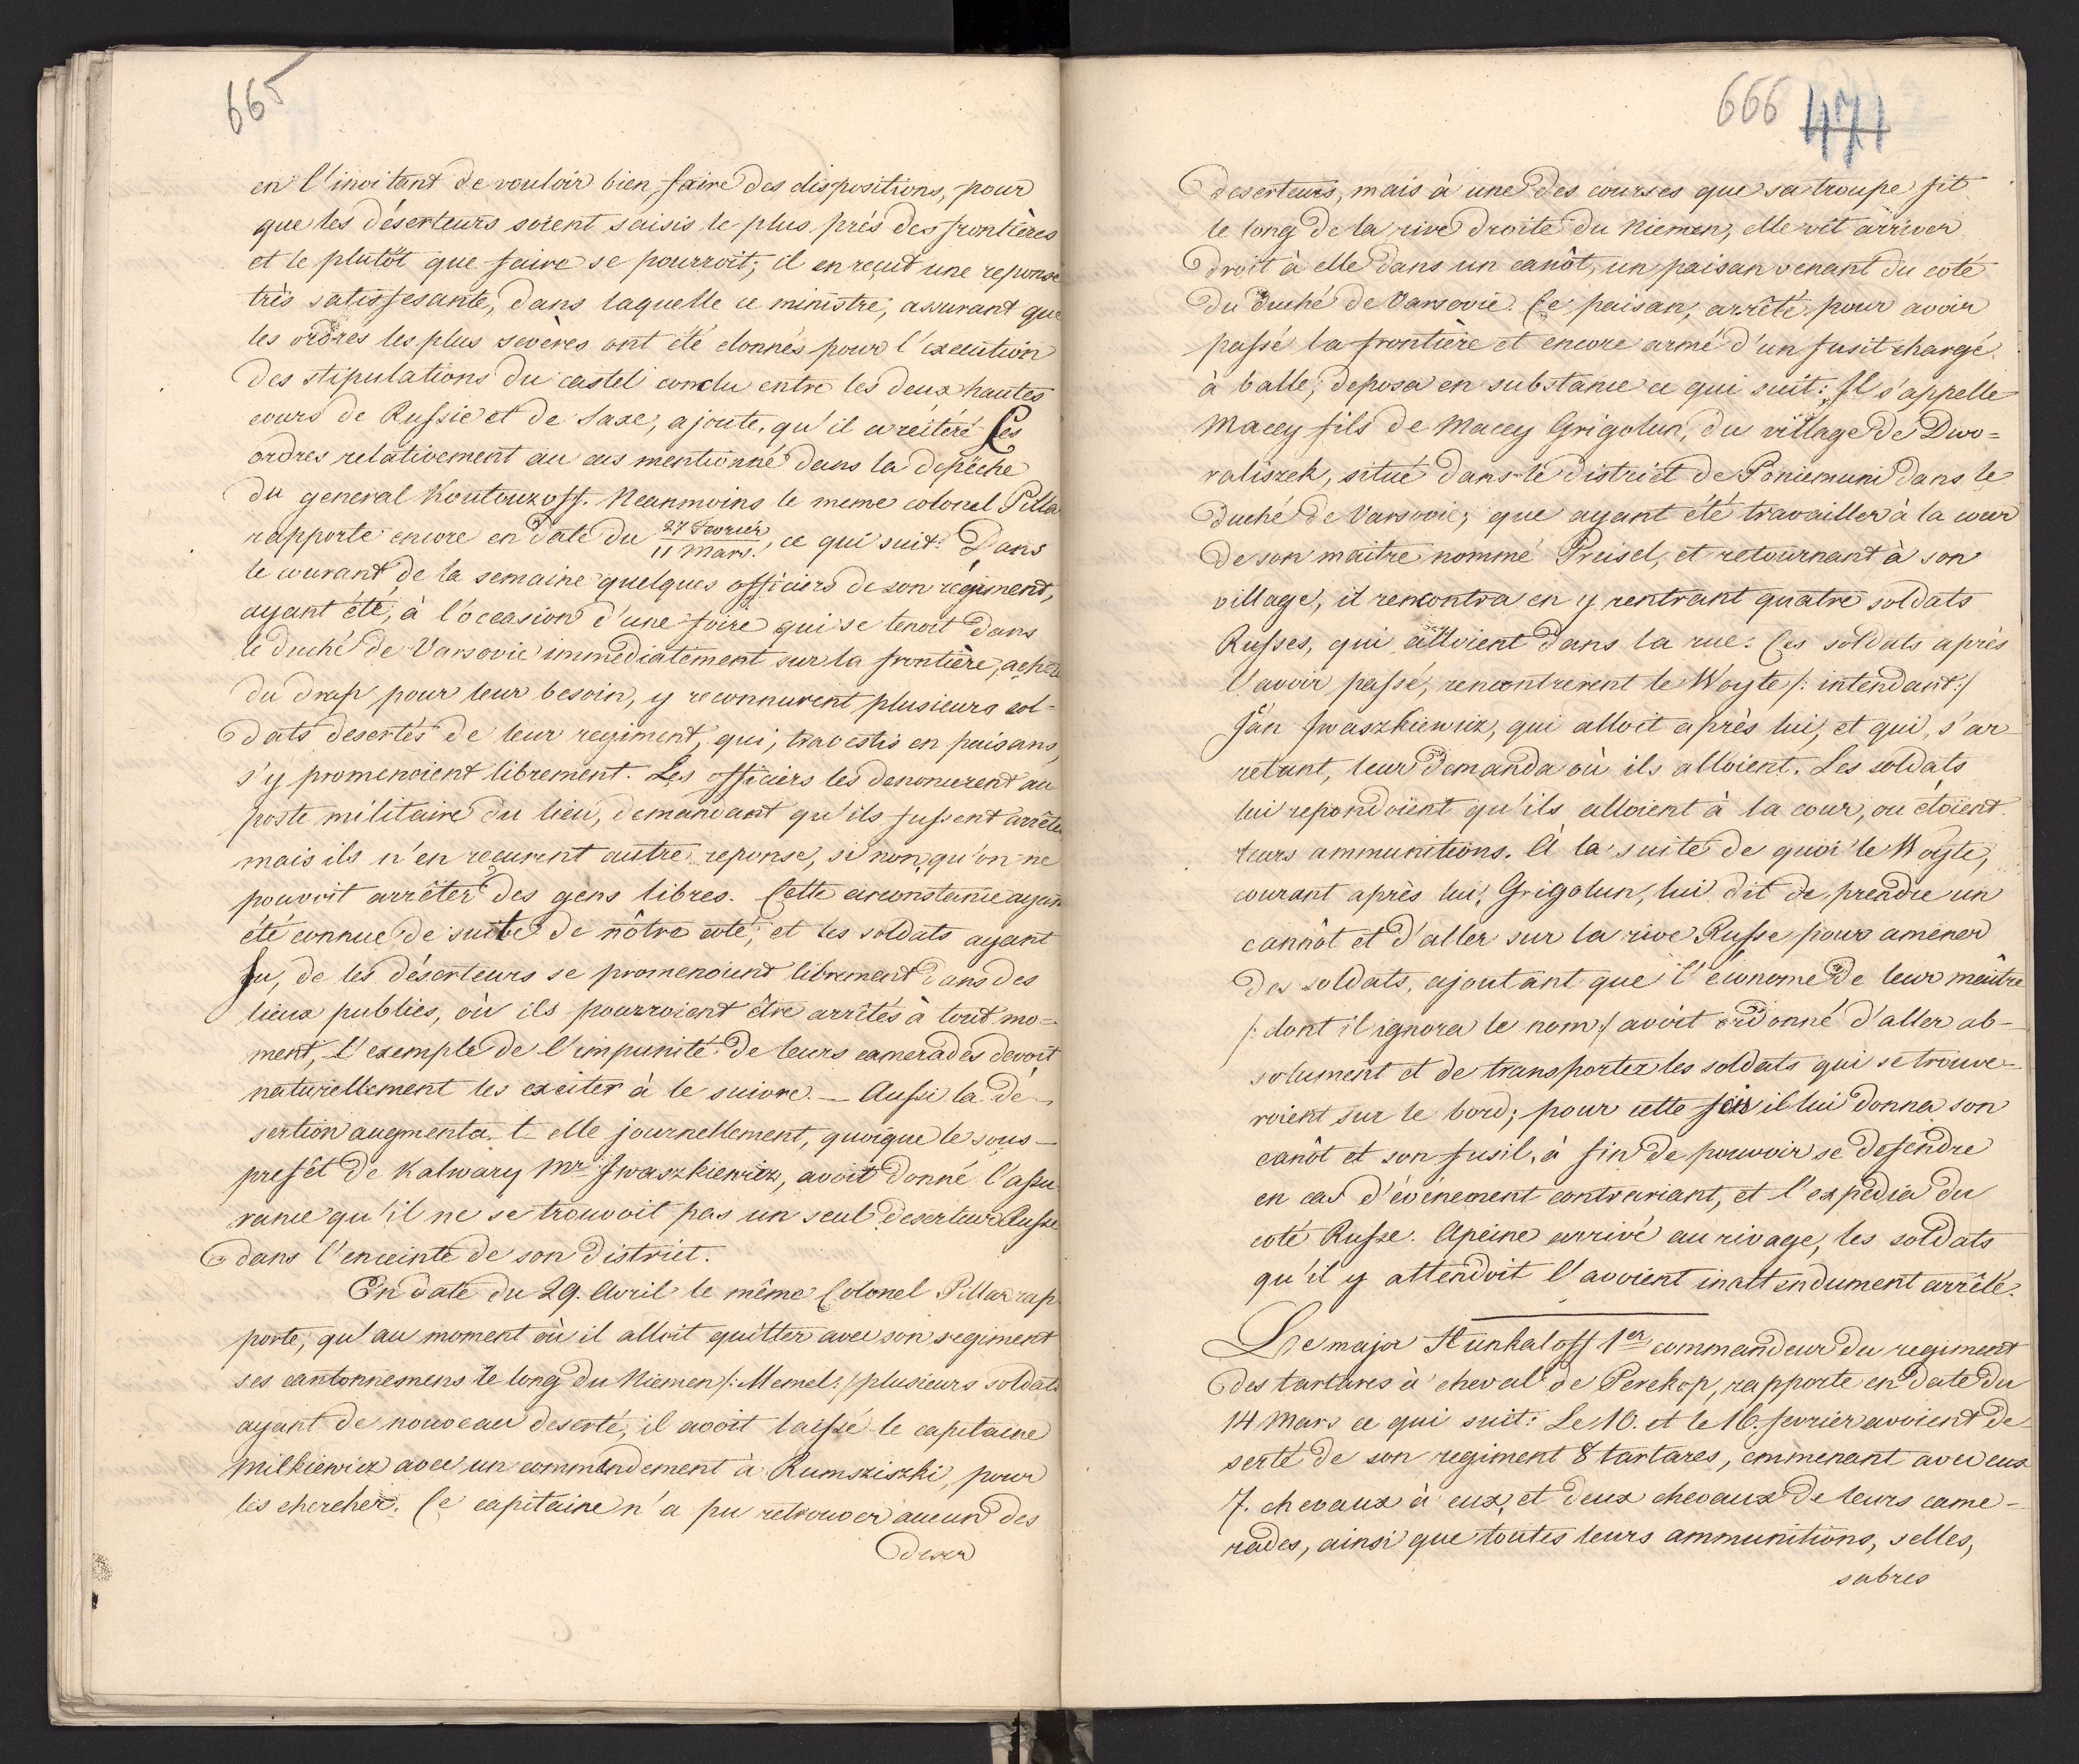 665
en l'invitant de vouloir bien faire des dispositions, pour
que les déserteurs soient saisis le plus près des frontières
et le plutôt que faire se pourroit; il en reçut une reponse
très satisfesante, dans laquelle ce ministre, assurant que
les ordres les plus sevères ont été donnés pour l'execution
des stipulations du castel conclu entre les deux hautes
cours de Russie et de Saxe, ajoute, qu'il a réiteré Ces
ordres relativement au cas mentionné dans la depêche
du general Koutouzoff. Neanmoins le meme colonel Pilla
rapporte encore en date du 27 Fevrier / 11 Mars, ce qui suit: Dans
le courant de la semaine quelques officiers de son regiment,
ayant été, à l'occasion d'une foire qui se tenoit dans
le duché de Varsovie immediatement sur la frontière, achete
du drap pour leur besoin, y reconnurent plusieurs sol-
dats desertés de leur regiment, qui, travestis en paisans,
s'y promenoient librement. Les officiers les denoncerent au
poste militaire du lieu, demandant qu'ils fussent arrêtés
mais ils n'en recurent autre reponse, si non, qu'on ne
pouvoit arrêter des gens libres. Cette circonstance ayant
été connue de suite de nôtre coté, et les soldats ayant
su, de les déserteurs se promenoient librement dans des
lieux publics, où ils pourroient être arrêtés à tout mo-
ment, l'exemple de l'impunité de leurs camerades devoit
naturellement les exciter à le suivre. — Aussi la dé-
sertion augmenta-t-elle journellement, quoique le sous-
prefêt de Kalwary Mr Iwaszkiewicz, avoit donné l'assu-
rance qu'il ne se trouvoit pas un seul deserteur Russe
dans l'enceinte de son district.
En date du 29. Avril le même Colonel Pillar rap-
porte, qu'au moment où il alloit quitter avec son regiment
ses cantonnemens le long du Niemen /: Memel :/ plusieurs soldats
ayant de nouveau deserté, il avoit laissé le capitaine
Milkiewicz avec un commendement à Rumsziszki, pour
les chercher. Ce capitaine n'a pu retrouver aucun des
deser
666 471
deserteurs, mais à une des courses que sa troupe fit
le long de la rive droite du Niemen, elle vit arriver
droit à elle dans un canôt, un paisan venant du coté
du duché de Varsovie. Ce paisan, arrêté pour avoir
passé la frontière et encore armé d'un fusil chargé
à balle, deposa en substance ce qui suit: Il s'appelle
Macey fils de Macey Grigolun, du village de Dwo-
raliszek, situé dans le district de Poniemuni dans le
duché de Varsovie; que ayant été travailler à la cour
de son maitre nommé Preisel, et retournant à son
village, il rencontra en y rentrant quatre soldats
Russes, qui alloient dans la rue: Ces soldats après
l'avoir passé, rencontrerent le Woyte /: intendant :/
Jan Iwaszkiewicz, qui alloit après lui, et qui, s'ar-
retant, leur demanda où ils alloient. Les soldats
lui repondoient qu'ils alloient à la cour, ou étoient
leurs ammunitions. A la suite de quoi le Woyte,
courant après lui, Grigolun, lui dit de prendre un
cannôt et d'aller sur la rive Russe pour amener
des soldats, ajoutant que l'econome de leur maître
/: dont il ignora le nom :/ avoit ordonné d'aller ab-
solument et de transporter les soldats qui se trouve-
roient sur le bord; pour cette fin il lui donna son
canôt et son fusil, à fin de pouvoir se defendre
en cas d'événement contrariant, et l'expedia du
coté Russe. Apeine arrivé au rivage, les soldats
qu'il y attendoit l'avoient inattendument arrêté.
Le major Hunkaloff 1er commandeur du regiment
des tartares à cheval de Perekop, rapporte en date du
14 Mars ce qui suit: Le 10. et le 16. fevrier avoient de-
serté de son regiment 8 tartares, emmenant avec eux
7. chevaux à eux, et deux chevaux de leurs came-
rades, ainsi que toutes leurs ammunitions, selles,
sabres